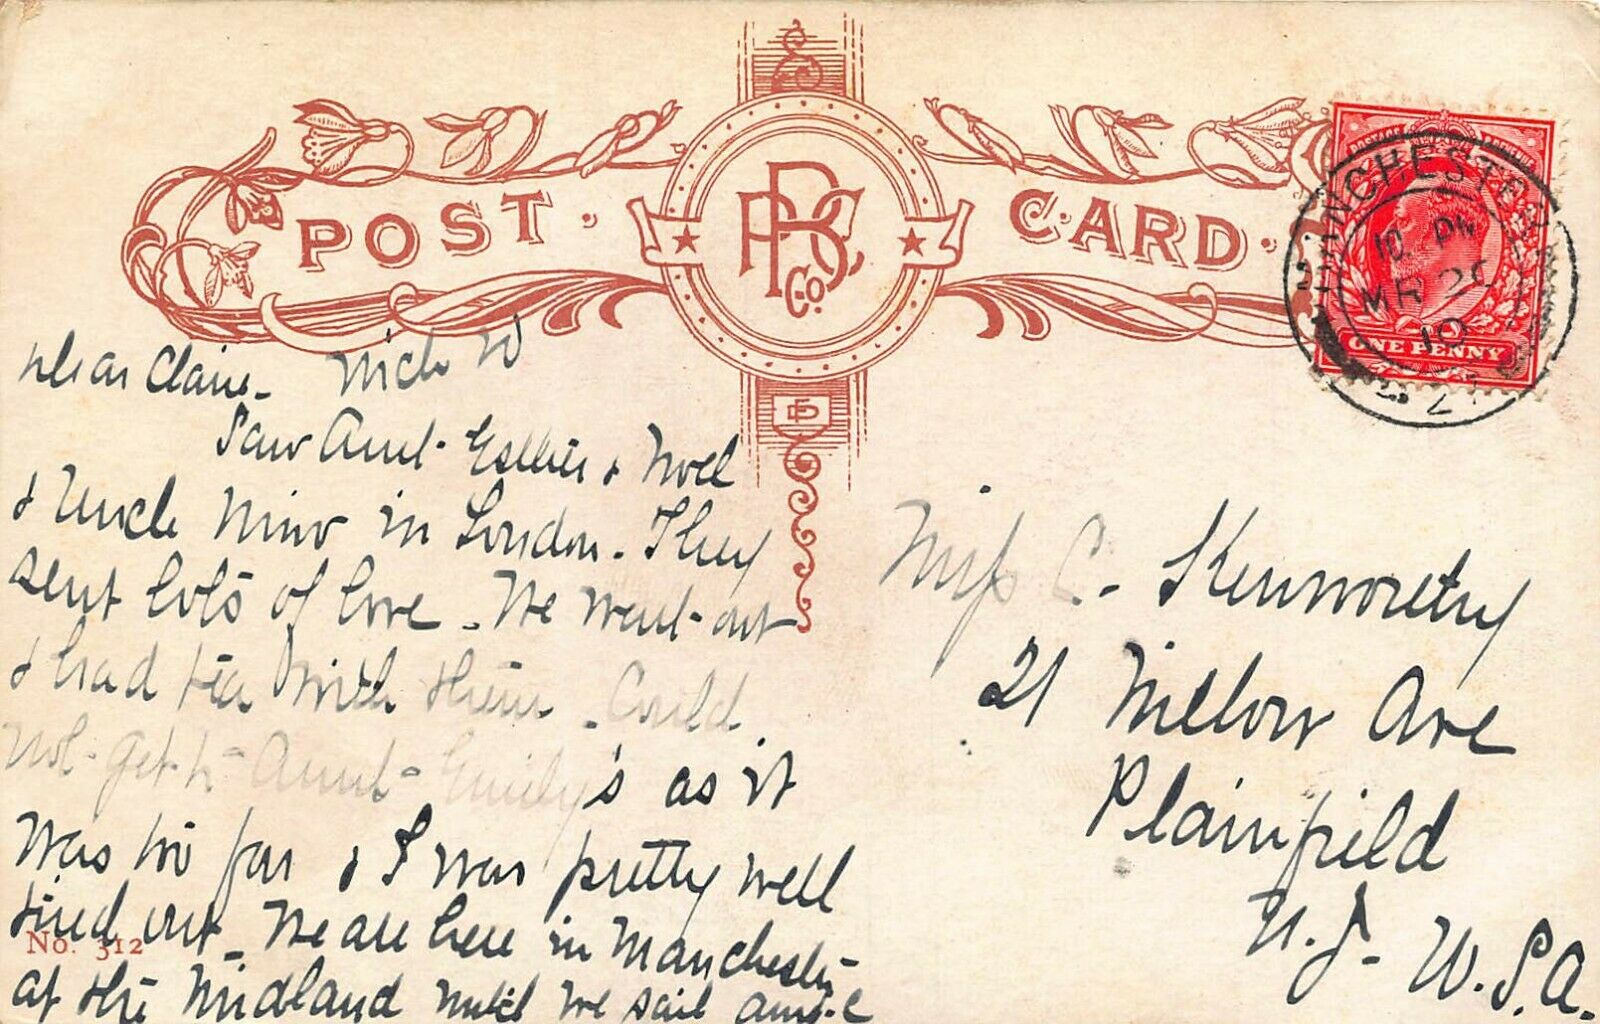 POST CARD
PBS Co.
MANCHESTER
10 PM
MR 2
10
ONE PENNY
Dear Claire - Wich W
Saw Aunt Esther & Noel
& Uncle in London. They
sent lots of love. We went out
& had tea with them. Could
not get to Aunt Emily's as it
was too far & I was pretty well
tired out. We are here in Manchester
at the Midland until we sail
No. 312
Miss C. Kenworthy
21 Willow Ave
Plainfield
N.J. U.S.A.